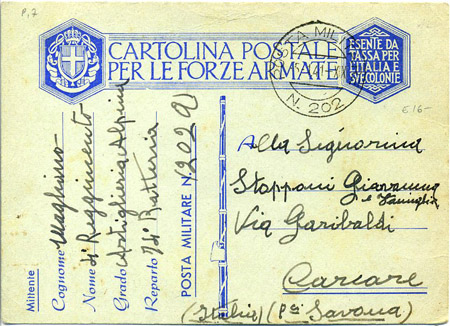 P.7
CARTOLINA POSTALE
PER LE FORZE ARMATE
ESENTE DA
TASSA PER
L'ITALIA E
SUE COLONIE
POSTA MILITARE
N. 202
€ 16-
Mittente
Cognome
Nome 4° Reggimento
Grado Artiglieria Alpina
Reparto Batteria
POSTA MILITARE N. 202 A
Alla Signorina
Stapponi Giovanna
e Famiglia
Via Garibaldi
Carcare
(Italia) (Pr Savona)